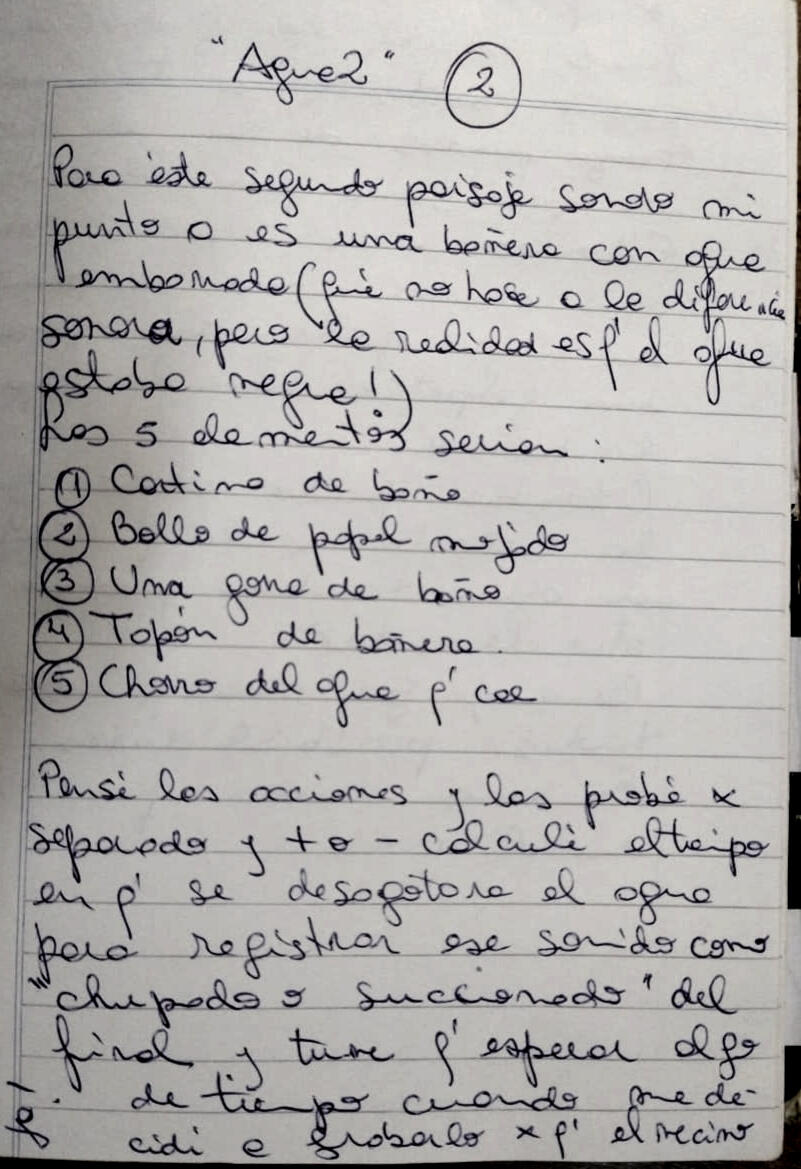 "Agua2" 2
Para éste segundo paisaje sonoro mi
punto 0 es una bañera con agua
embarrada (que no hace a la diferencia
sonora, pero la realidad es q' el agua
estaba negra!)
Los 5 elementos serían:
① Cortina de baño
② Bollo de papel mojado
③ Una goma de baño
④ Tapón de bañera.
⑤ Chorro del agua q' cae
Pensé las acciones y las probé x
separado y + o - calculé el tiempo
en q' se desagotara el agua
para registrar ese sonido como
"chupado o succionado" del
final y tuve q' esperar algo
de tiempo cuando me de-
cidí a grabarlo x q' el vecino